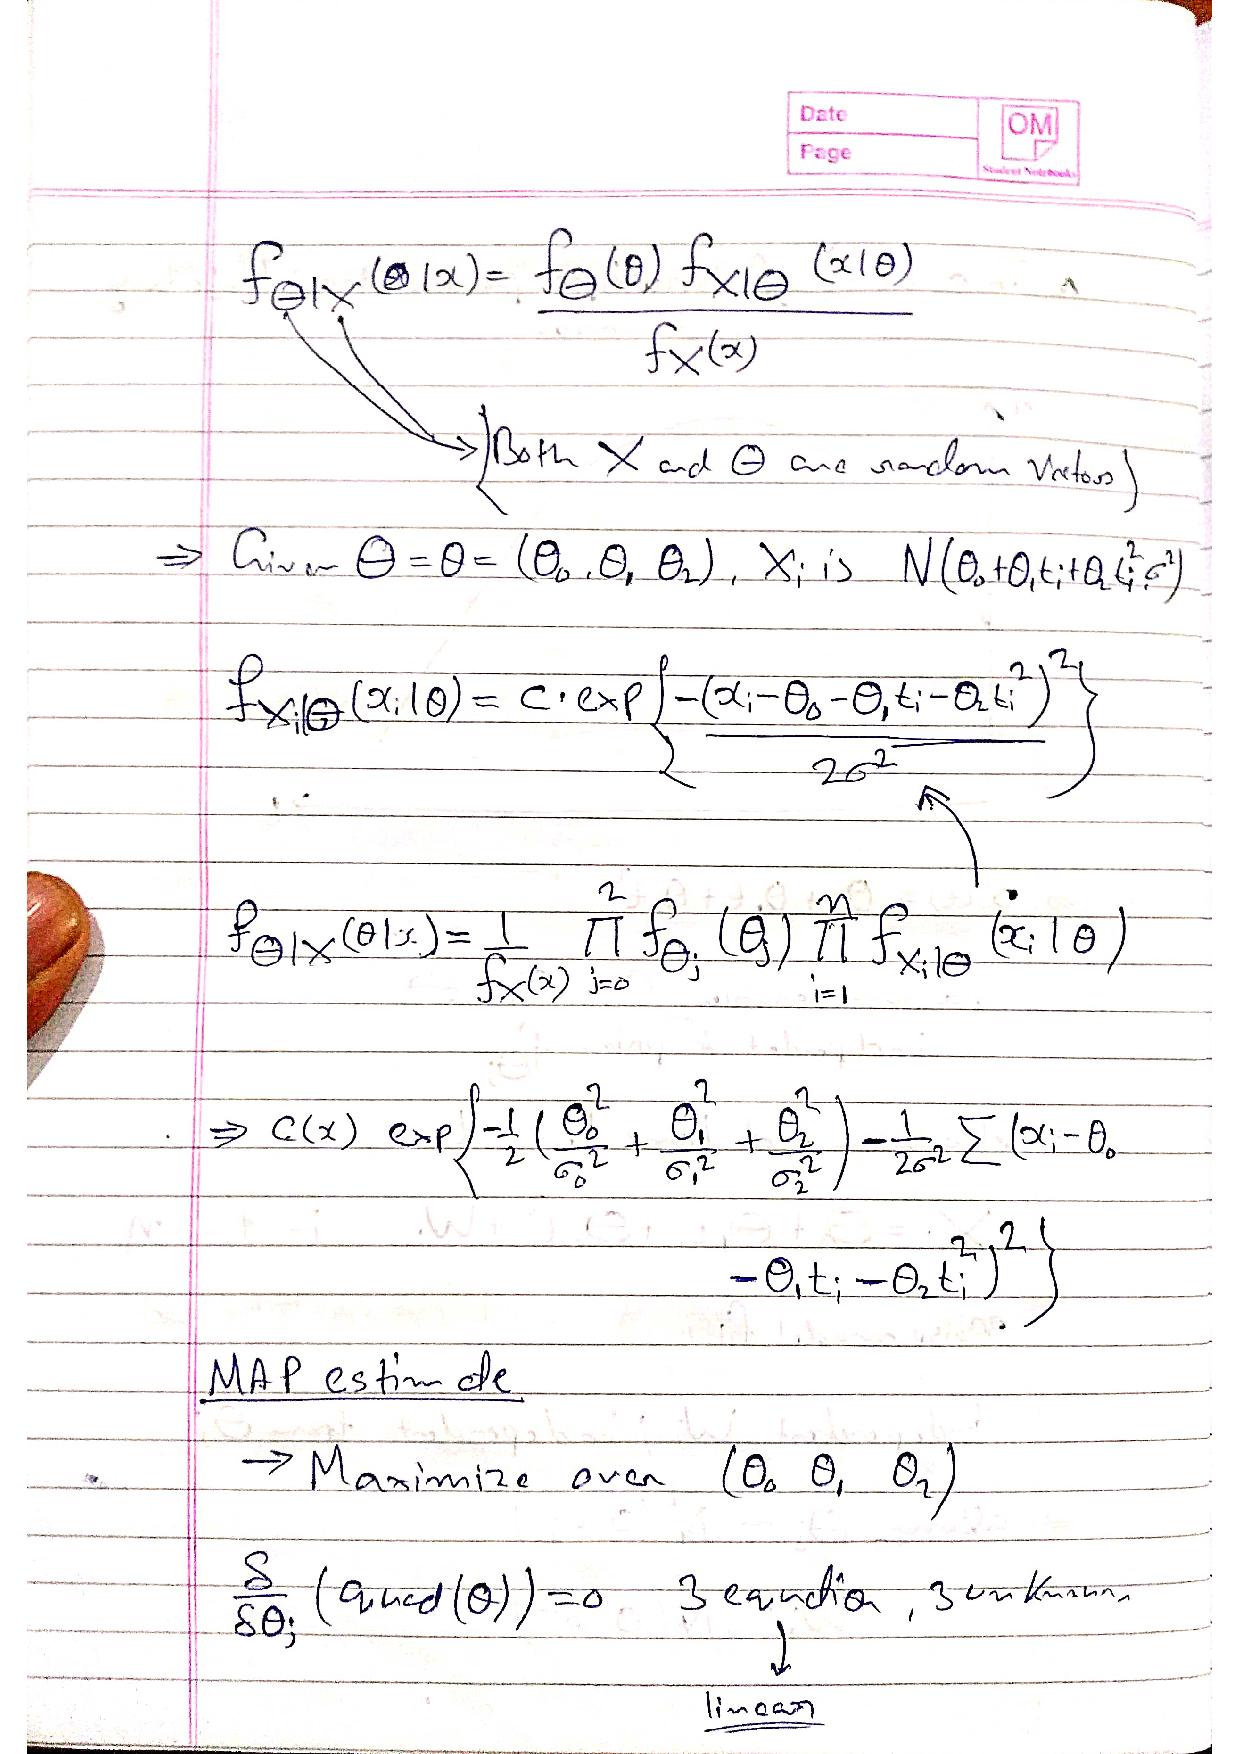 Date
OM
Page
Student Notebooks
f_Θ|X (θ|x) = f_Θ(θ) f_X|Θ (x|θ)
f_X(x)
{Both X and Θ are random vectors}
⇒ Given Θ = θ = (θ₀, θ₁ θ₂), Xᵢ is N(θ₀+θ₁tᵢ+θ₂tᵢ², σ²)
f_Xᵢ|Θ (xᵢ|θ) = c · exp{-(xᵢ-θ₀-θ₁tᵢ-θ₂tᵢ²)²
2σ² }
f_Θ|X (θ|x) = 1/f_X(x) ∏_{j=0}^{2} f_Θⱼ (θⱼ) ∏_{i=1}^{n} f_Xᵢ|Θ (xᵢ|θ)
⇒ c(x) exp{-1/2 (θ₀²/σ₀² + θ₁²/σ₁² + θ₂²/σ₂²) - 1/2σ² Σ (xᵢ-θ₀
-θ₁tᵢ - θ₂tᵢ²)²}
MAP estimate
→ Maximize over (θ₀ θ₁ θ₂)
δ/δθⱼ (quad(θ)) = 0 3 equation, 3 unknown
↓
linear